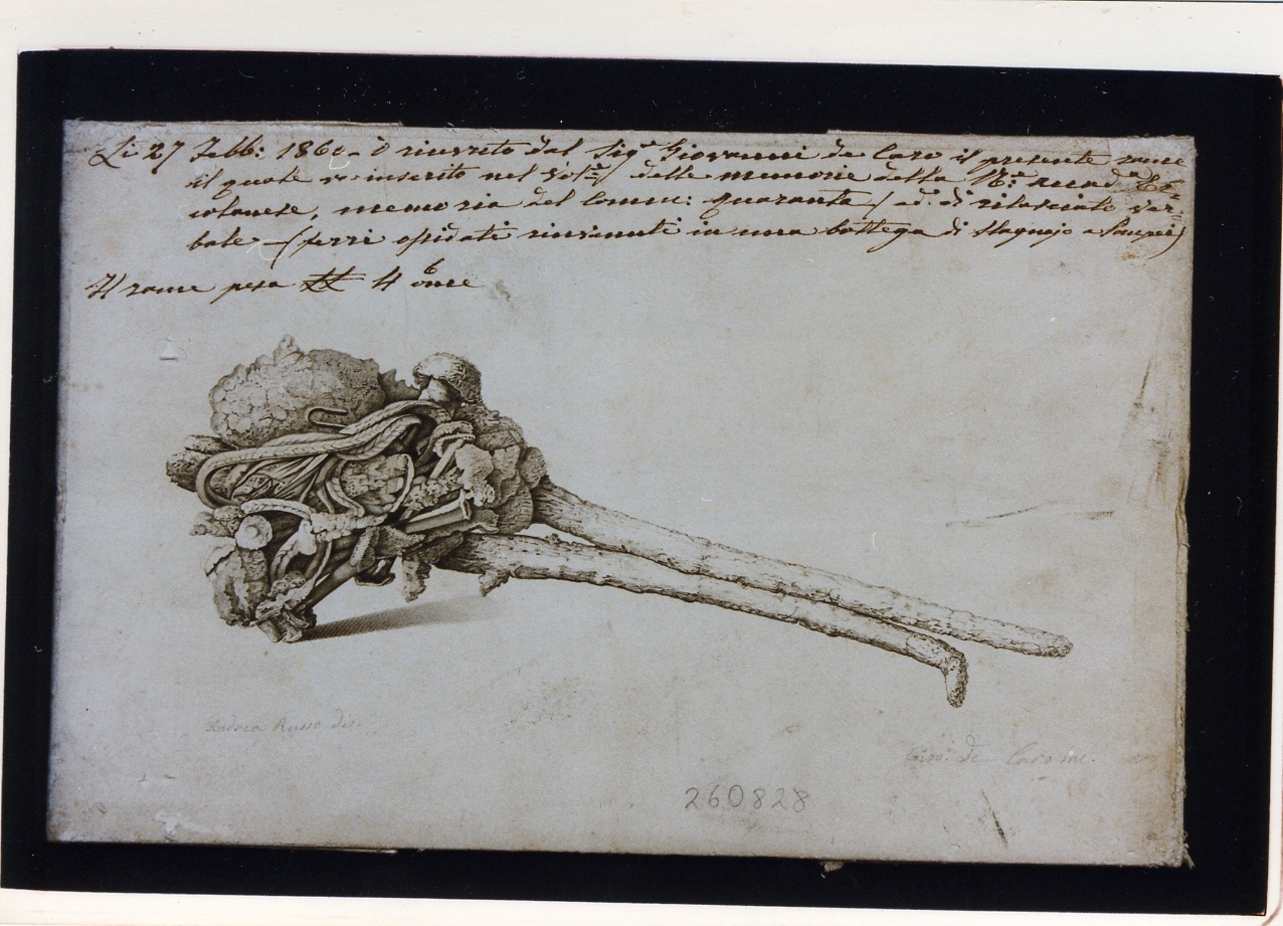 Li 27 Febb: 1860 - ò ricevuto dal Sig.r Giovanni de Caro il presente rame
il quale va inserito nel Vol: delle memorie della R.le Accad.a Er=
colanese, memoria del Comm: Quaranta / ad: di rilasciato ver=
bale - (ferri ossidati rinvenuti in una bottega di stagnajo a Pompei)
Il rame pesa 4 6 once
Andrea Russo dis.
Giov. de Caro inc.
260828